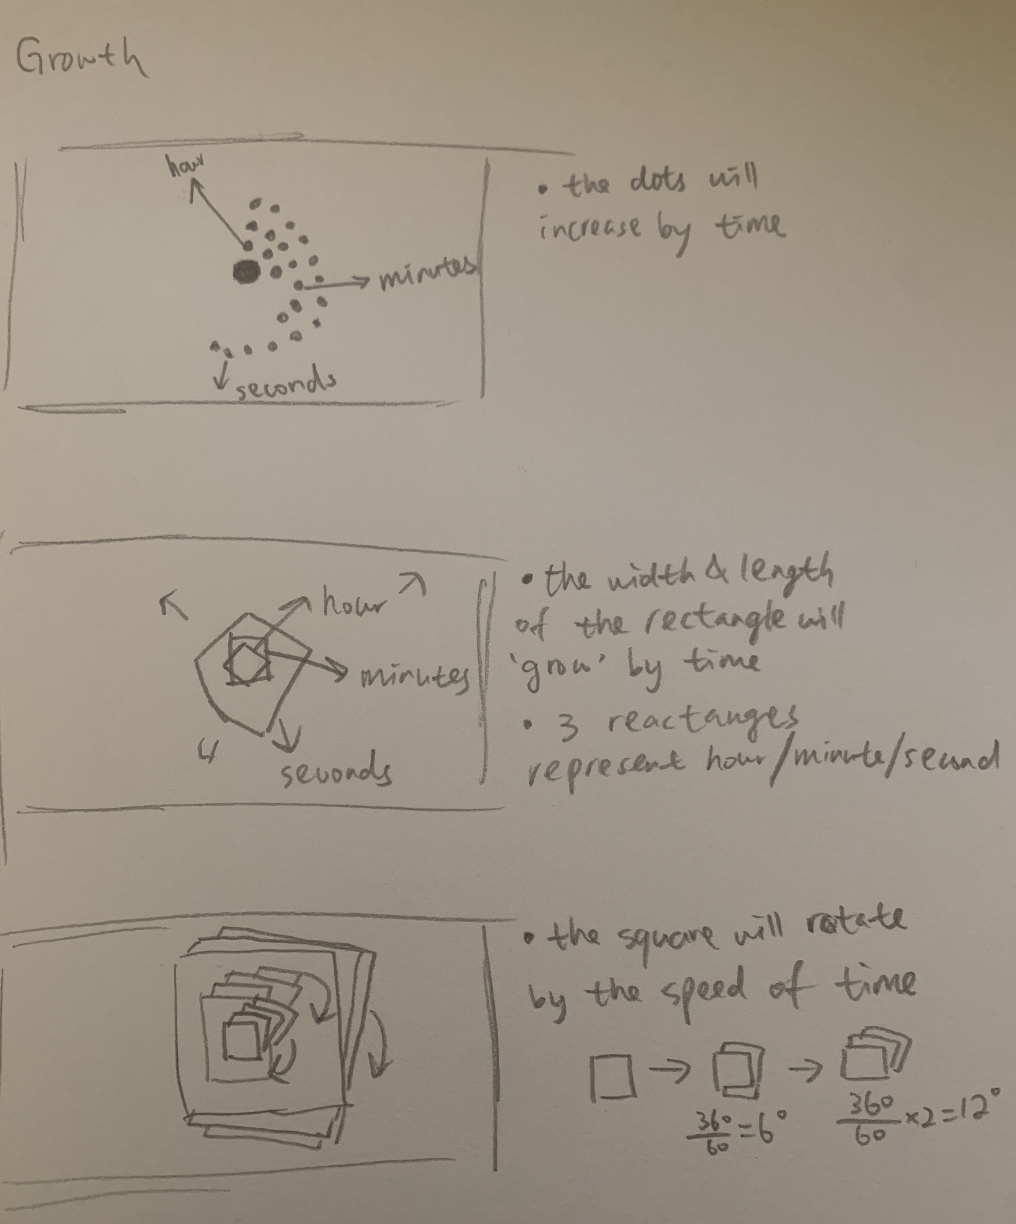 Growth
hour
• the dots will
increase by time
minutes
seconds
• the width & length
of the rectangle will
'grow' by time
hour
minutes
• 3 reactanges
represent hour/minute/second
seconds
• the square will rotate
by the speed of time
360/60 = 6°
360/60 ×2=12°